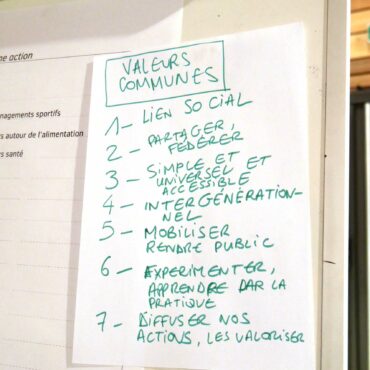 ne action
nagements sportifs
s autour de l'alimentation
s santé
VALEURS
COMMUNES
1 - LIEN SOCIAL
2 - PARTAGER,
FÉDÉRER
3 - SIMPLE ET
UNIVERSEL ET
ACCESSIBLE
4 - INTERGÉNÉRATION-
NEL
5 - MOBILISER
RENDRE PUBLIC
6 - EXPERIMENTER,
APPRENDRE PAR LA
PRATIQUE
7 - DIFFUSER NOS
ACTIONS, LES VALORISER